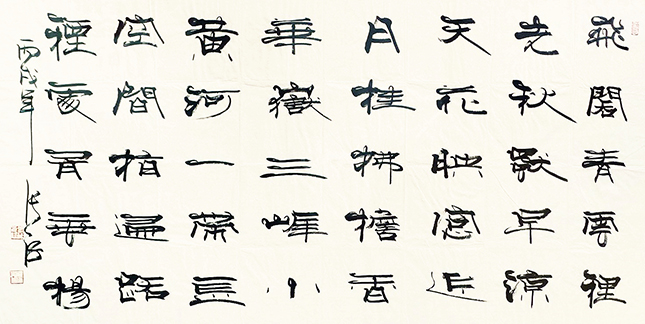 飛閣青雲裡
先秋獨早涼
天花映窗近
月桂拂檐香
華嶽三峰小
黄河一帶長
空間指歸路
煙處有垂楊
丙戌年